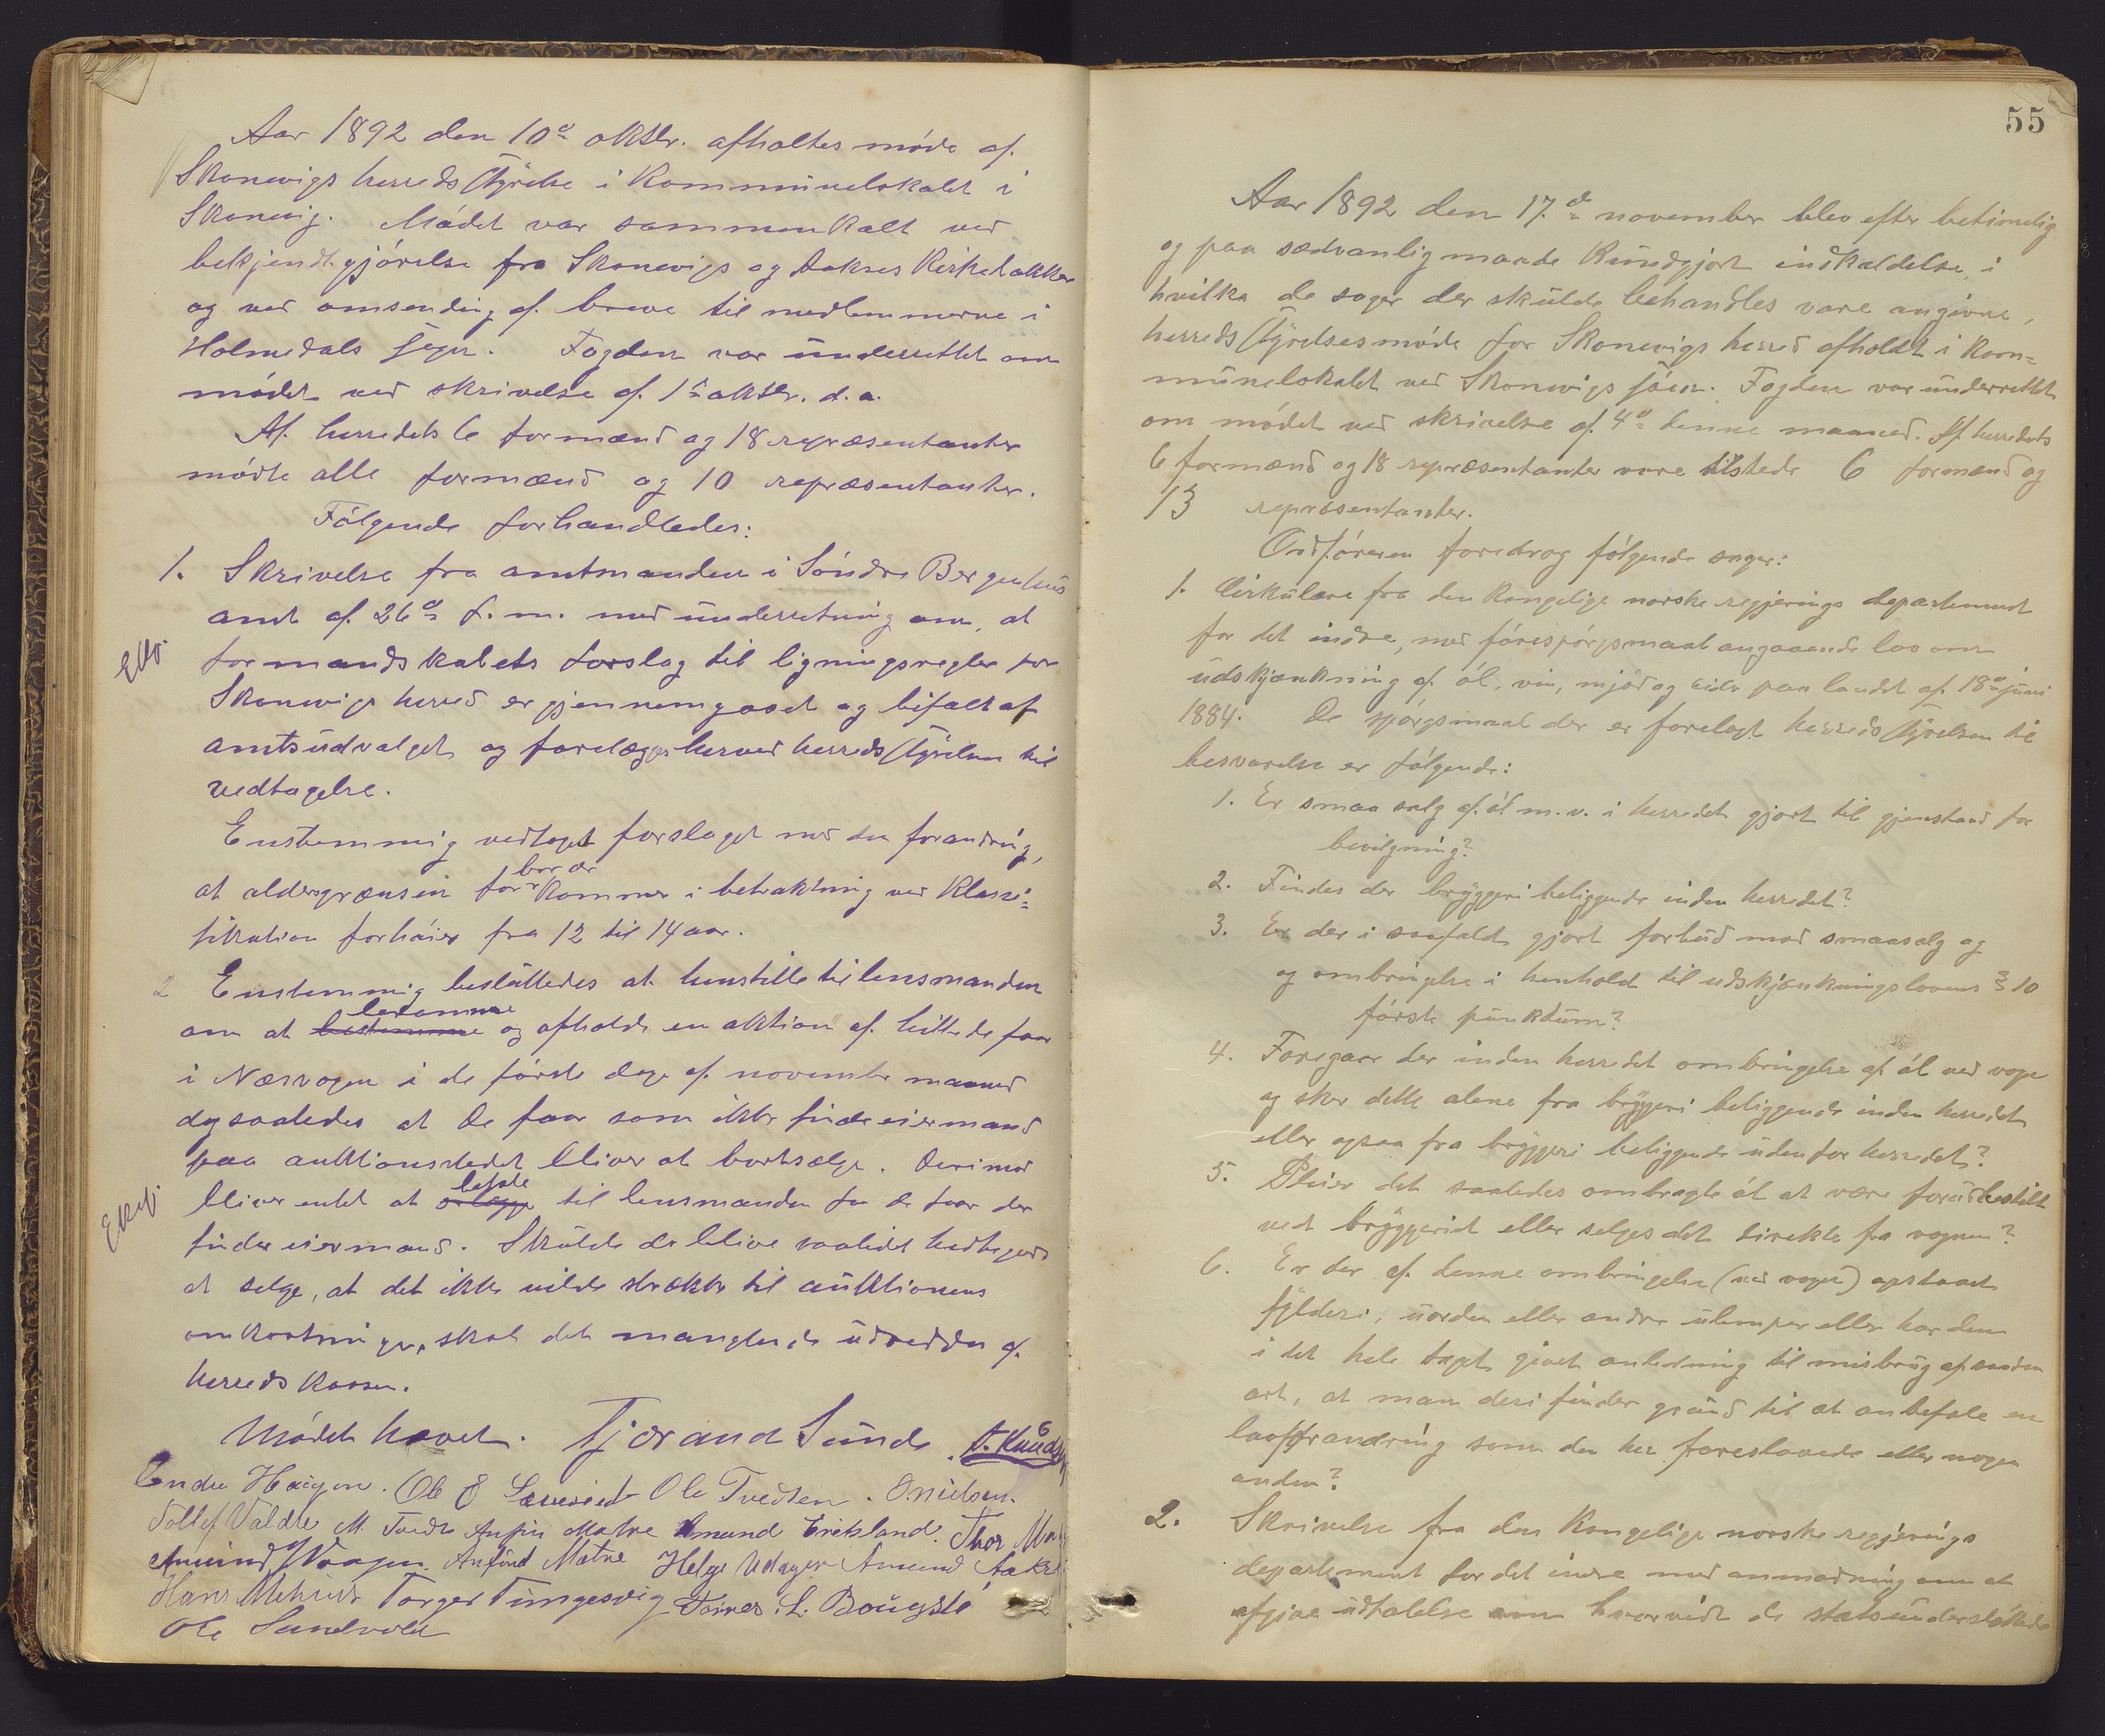 Aar 1892 den 10de oktbr. afholtes møde af
Skonevigs herredsstyrelse i kommunelokalet i
Skonevig. Mødet var sammenkalt ved
bekjendtgjørelse fra Skonevigs og Aakres kirkebakker
og ved omsending af breve til medlemmerne i
Holmedals sogn. Fogden var underrettet om
mødet ved skrivelse af 1ste oktbr. d.a.
Af herredets 6 formænd og 18 repræsentanter
mødte alle formænd og 10 repræsentanter.
Følgende forhandledes:
1. Skrivelse fra amtmanden i Søndre Bergenhus
amt af 26de f.m. med underretning om, at
formandskabets forslag til ligningsregler for
Skonevigs herred er gjennemgaaet og bifalt af
amtsudvalget og forelægges herved herredsstyrelsen til
vedtagelse.
Enstemmig vedtaget forslaget med den forandring,
at aldersgrænsen for børn kommer i betraktning ved klassi=
fikation forhøies fra 12 til 14 aar.
2 Enstemmig besluttedes at henstille til lensmanden
om at beramme og afholde en aktion af hittede faar
i Næsvogen i de første dage af november maaned
dog saaledes at de faar som ikke finder eiermand
paa auktionsstedet bliver at bortsælge. Derimod
bliver intet at betale til lensmanden for de faar der
finder eiermand. Skulde der blive saalidet
at selge, at det ikke vilde strække til auktionens
omkostninger, skal det manglende udreddes af
herredskassen.
Mødet hævet. Tjerand Sunde. A. Knudsen
Endre Haugen. Ole O Særeid Ole Tvedten. O. Nielsen.
Tollef Valdre M. Tvedte Anfin Matre Amund Eriksland. Thor
Amund Vaagen Anfind Matre Helge Udager Amund Aakre
Hans Mehus Torger Tungesvig Tørres L. Bougstø
Ole Sandvold
55
Aar 1892 den 17.de november blev efter betimelig
og paa sædvanlig maade kundgjort indkaldelse, i
hvilke de sager der skulde behandles vare angivne,
herredsstyrelsesmøde for Skonevigs herred afholdt i kom=
munelokalet ved Skonevigs søen. Fogden var underrettet
om mødet ved skrivelse af 4de denne maaned. Af herredets
6 formænd og 18 repræsentanter vare tilstede 6 formænd og
13 repræsentanter.
Ordføreren foredrog følgende sager:
1. Cirkulære fra den kongelige norske regjerings departement
for det indre, med forespørgsmaal angaaende lov om
udskjænkning af øl, vin, mjød og cider paa landet af 18de juni
1884. De spørgsmaal der er forelagt herredsstyrelsen til
besvarelse er følgende:
1. Er smaa salg af øl m.v. i herredet gjort til gjenstand for
bevilgning?
2. Findes der bryggeri beliggende inden herredet?
3. Er der i saafald gjort forbud mod smaasalg og
og ombringelse i henhold til udskjænkningslovens § 10
første punktum?
4. Foregaar der inden herredet ombringelse af øl ved vogn
og sker dette alene fra bryggeri beliggende inden herredet
eller ogsaa fra bryggeri beliggende udenfor herredet?
5. Pleier det saaledes ombragte øl at være forudbestilt
ved bryggeriet eller selges det direkte fra vognen?
6. Er der af denne ombringelse (ved vogn) opstaaet
fylderi, uorden eller andre ulemper eller har den
i det hele taget givet anledning til misbrug af anden
art, at man deri finder grund til at anbefale en
lovforandring som den her foreslaaede eller nogen
anden?
2. Skrivelse fra den kongelige norske regjerings
departement for det indre med anmodning om at
afgive udtalelse om hvorvidt de statsunderstøttede